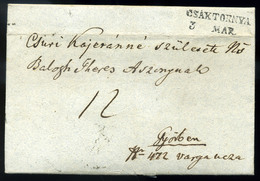 CSÁKTORNYA
3 MAR.
Csúri Kajeránné születése Ns
Balogh Theres Aszonynak
12
Győrben
Nro 472 varga ucza